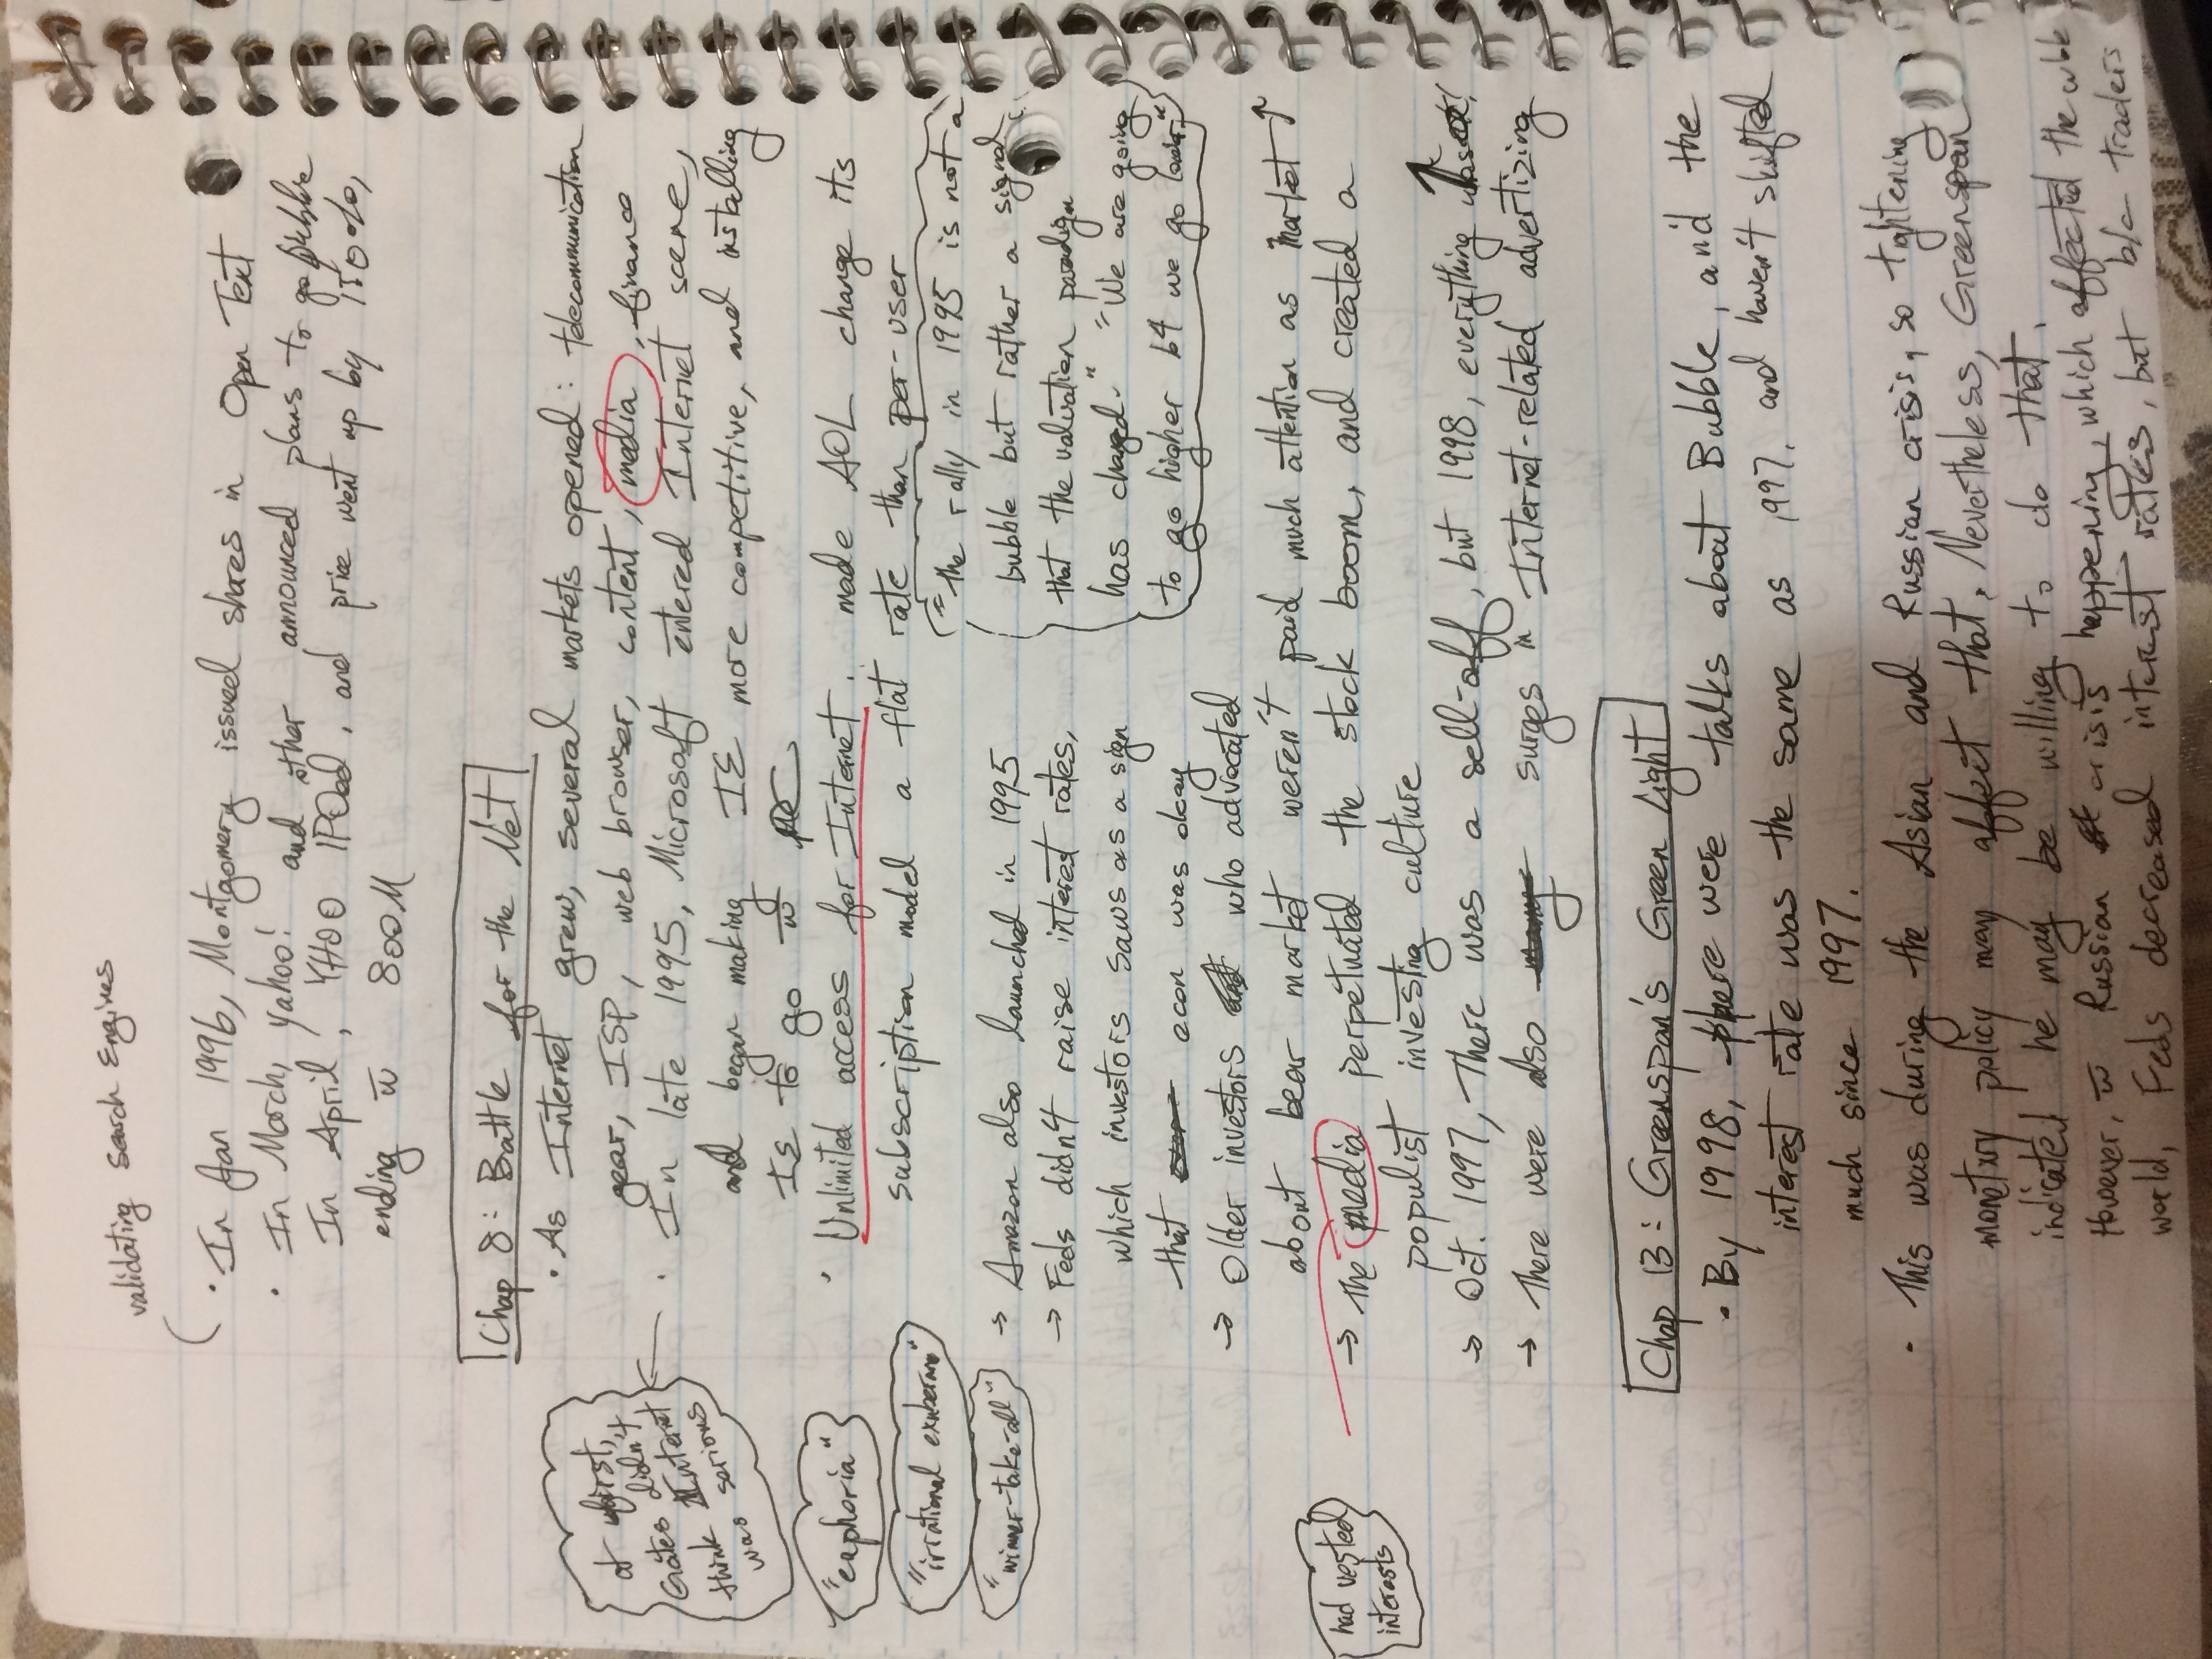 validating Search Engines
· In Jan 1996, Montgomery issued shares in Open Text
· In March, yahoo! and other announced plans to go public
In April, YHOO IPOed, and price went up by 150%,
ending w̅ 800M
Chap 8: Battle for the Net
· As Internet grew, several markets opened: telecommunication
gear, ISP, web browser, content, media, finance
at first,
Gates didn't
think Internet
was serious
· In late 1995, Microsoft entered Internet scene,
and began making IE more competitive, and installing
IE to go w̅ PC
"euphoria"
"irrational exuberanc"
"winner-take-all"
· Unlimited access for Internet. made AOL change its
subscription model a flat rate than per-user
"the rally in 1995 is not a
bubble but rather a signal
that the valuation paradigm
has changed." "We are going
to go higher b4 we go lower"
→ Amazon also launched in 1995
→ Feds didn't raise interest rates,
which investors saws as a sign
that econ was okay
→ Older investors who advocated
about bear market weren't paid much attention as market ↑
had vested
interests
→ The media perpetuated the stock boom, and created a
populist investing culture
→ Oct. 1997, There was a sell-off, but 1998, everything ↑!
→ There were also surges in Internet-related advertizing
Chap 13: Greenspan's Green Light
· By 1998, there were talks about Bubble, and the
interest rate was the same as 1997. and haven't shifted
much since 1997.
· This was during the Asian and Russian crisis, so tightening
monetary policy may affect that. Nevertheless, Greenspan
indicated he may be willing to do that.
However, w̅ Russian crisis happening, which affected the whole
world, Feds decreased interest rates, but b/c traders